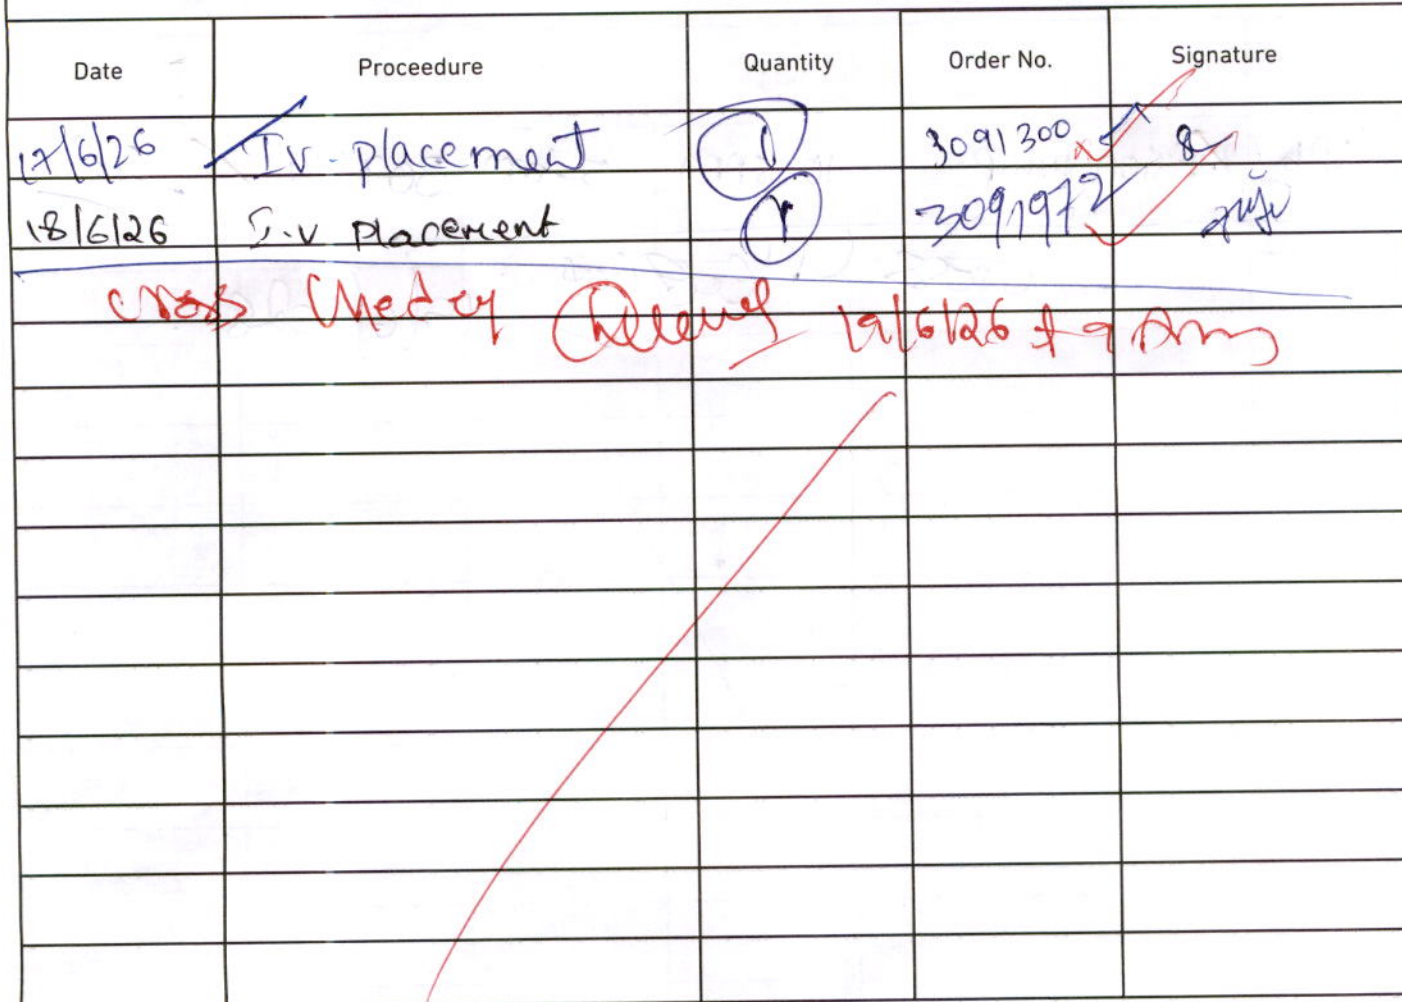 Date Proceedure Quantity Order No. Signature
17/6/26 IV. placement 1 3091300
18/6/26 I.V placement 1 3091972
cross 19/6/26